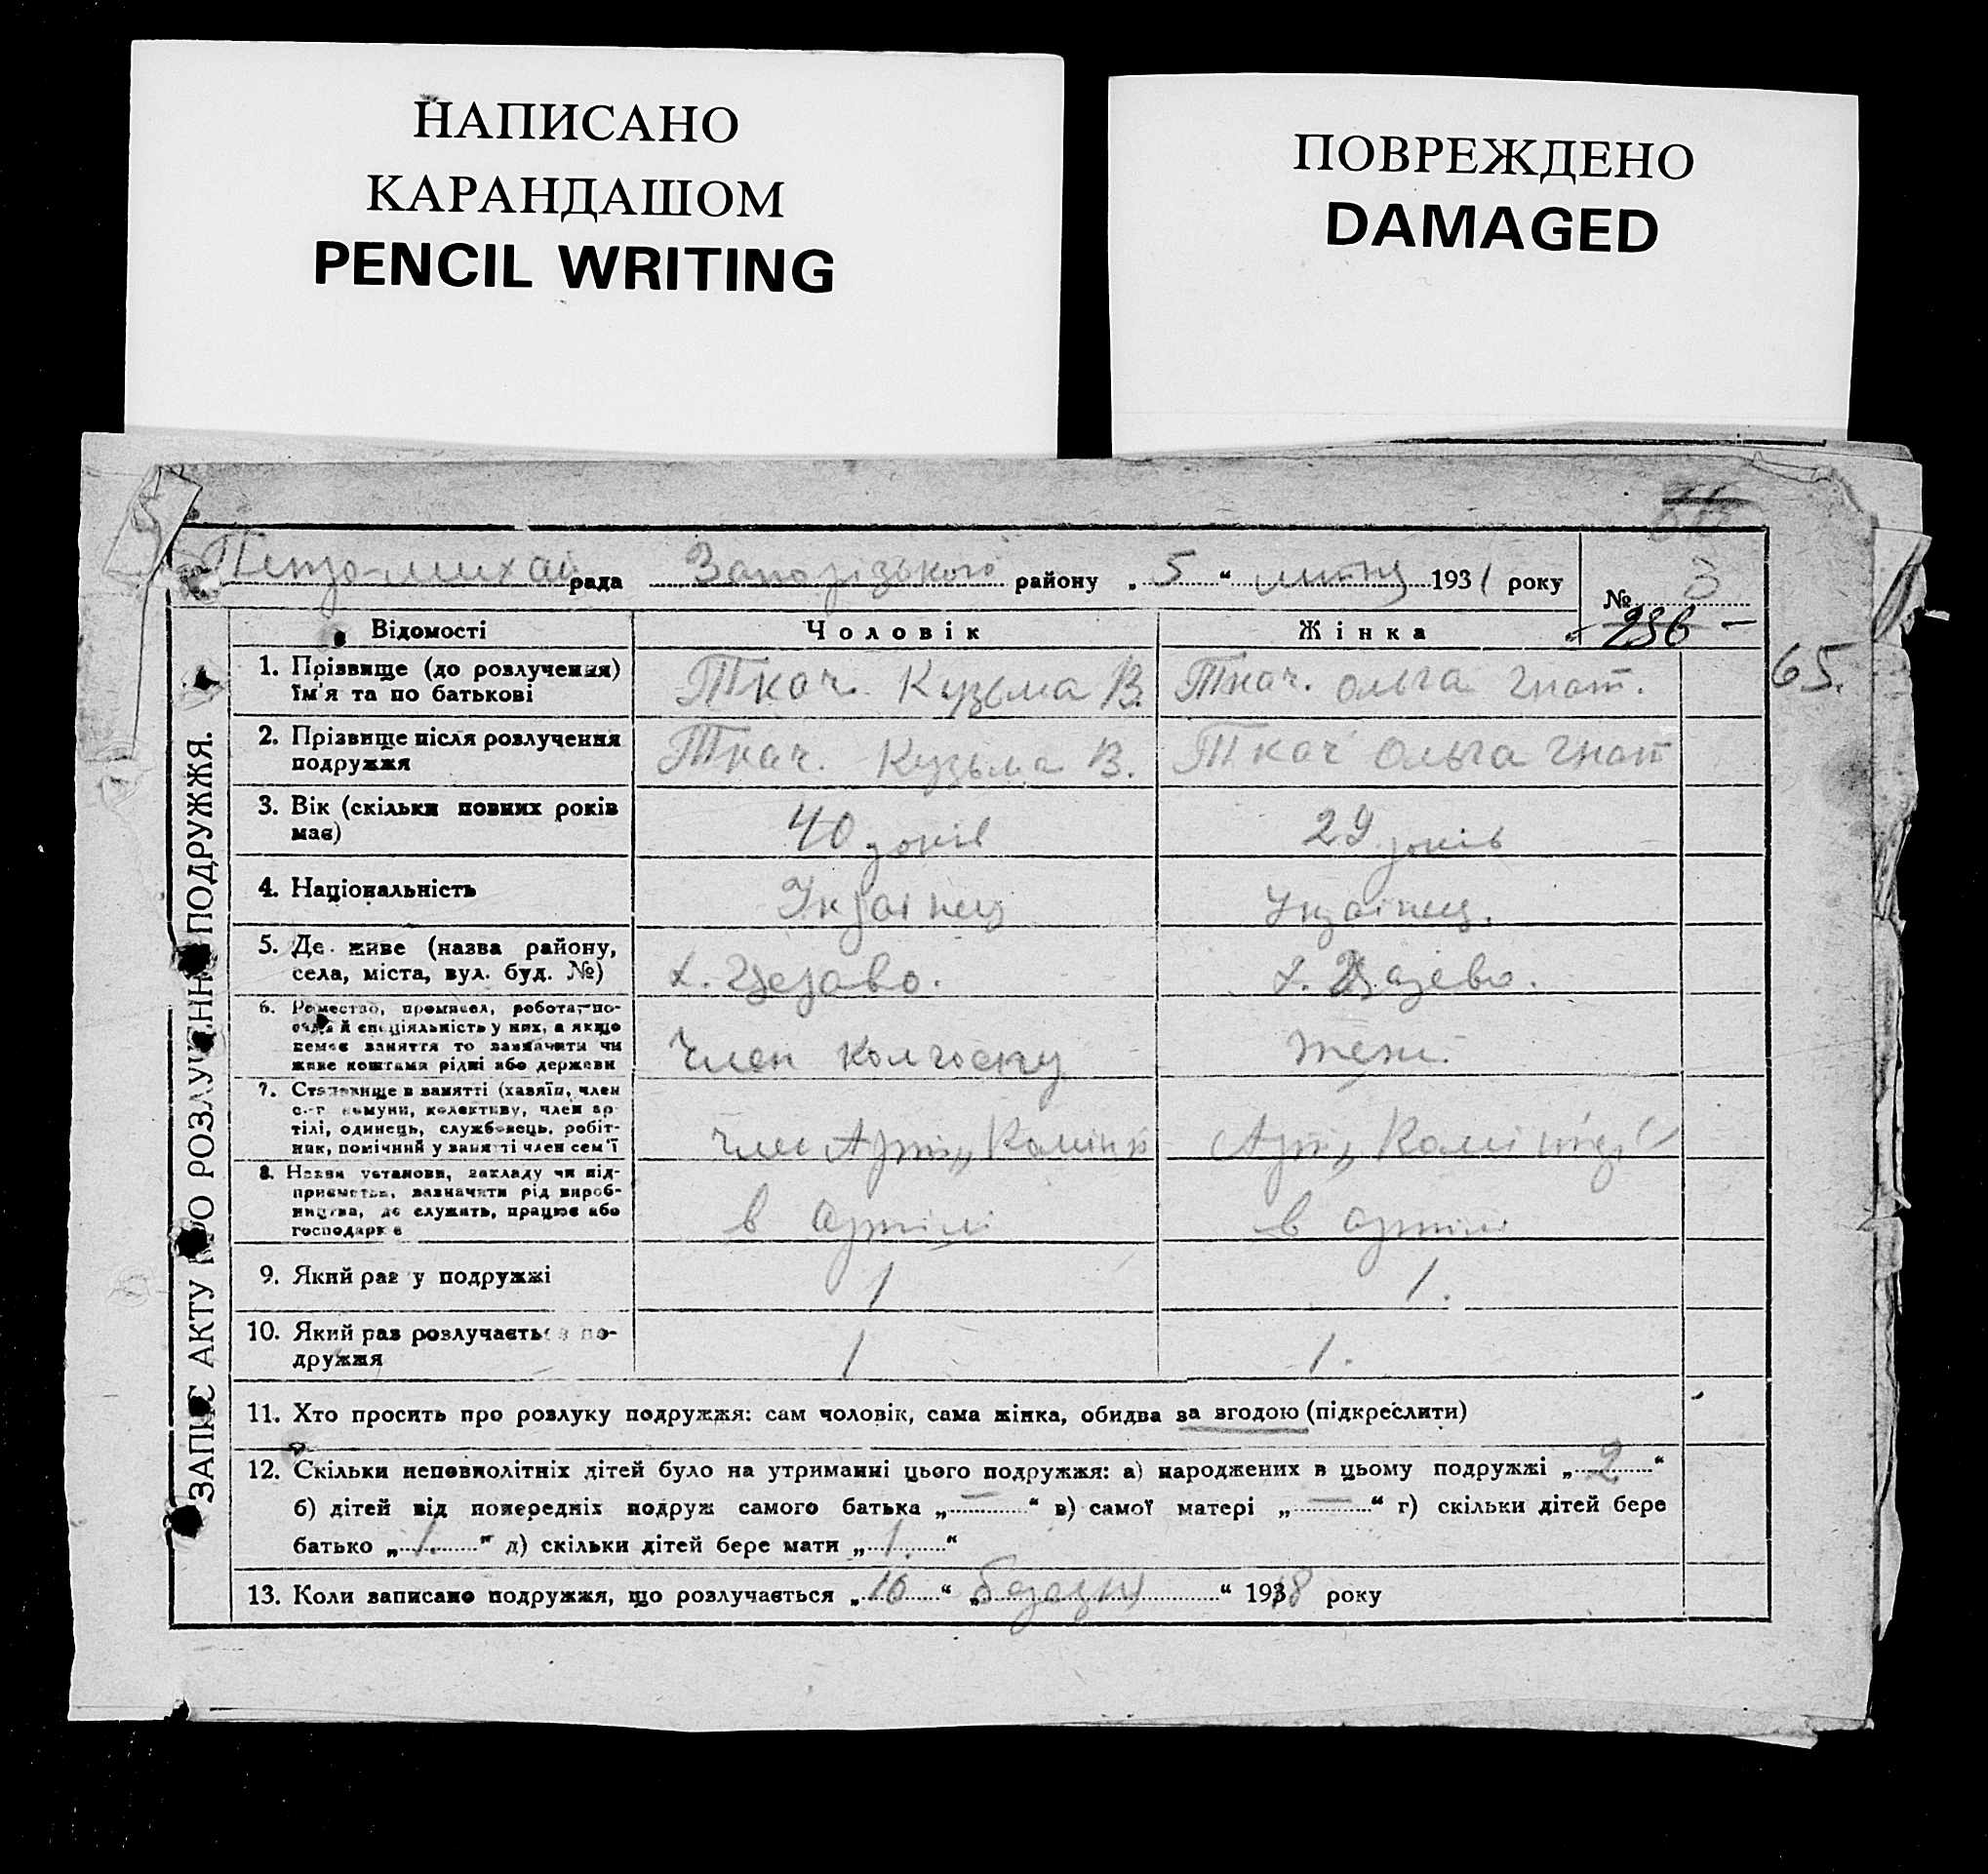 НАПИСАНО
КАРАНДАШОМ
PENCIL WRITING
ПОВРЕЖДЕНО
DAMAGED
рада Запорізького району „ 5 “ 1931 року
№ 3
236 –
65.
ЗАПИС АКТУ ПРО РОЗЛУЧЕННЯ ПОДРУЖЖЯ.
Відомості Чоловік Жінка
1. Прізвище (до розлучення) Ткач. Кузьма В. Ткач. Ольга Гнат.
їм'я та по батькові
2. Прізвище після розлучення Ткач. Кузьма В. Ткач Ольга Гнат
подружжя
3. Вік (скільки повних років 40 років 29 років
має)
4. Національність Українец Українец.
5. Де живе (назва району,
села, міста, вул. буд. №)
6. Ремество, промисел, робота, по-
сада й спеціяльність у них, а якщо
немає заняття то зазначити чи Член колгоспу
живе коштами рідні або держави
7. Становище в занятті (хазяїн, член
с.-г комуни, колективу, член ар-
тілі, одинець, службовець, робіт-
ник, помічний у занятті член сем'ї
8. Назва установи, закладу чи під-
приємства, зазначити рід вироб-
ництва, де служить, працює або в артілі в артілі
господарює
9. Який раз у подружжі 1 1.
10. Який раз розлучається по- 1 1.
дружжя
11. Хто просить про розлуку подружжя: сам чоловік, сама жінка, обидва за згодою (підкреслити)
12. Скільки неповнолітніх дітей було на утриманні цього подружжя: а) народжених в цьому подружжі „ 2 “
б) дітей від попередніх подруж самого батька „ — “ в) самої матері „ — “ г) скільки дітей бере
батько „ 1. “ д) скільки дітей бере мати „ 1. “
13. Коли записано подружжя, що розлучається „ 16 “ „ “ 1918 року